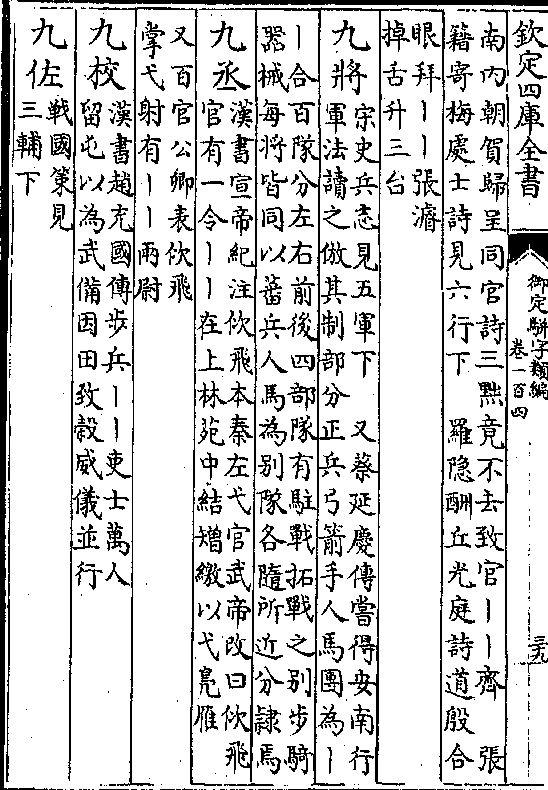 欽定四庫全書
御定駢字類編
卷一百四
三九
南内朝賀歸呈同官詩三黜竟不去致官丨丨齊 張
籍寄梅處士詩見六行下 羅隐酬丘光庭詩道殷合
眼拜丨丨張濬
掉舌升三台
九將
宋史兵志見五軍下 又蔡延慶傳嘗得安南行
軍法讀之倣其制部分正兵弓箭手人馬團為丨
丨合百隊分左右前後四部隊有駐戰拓戰之别步騎
器械每將皆同以蕃兵人馬為别隊各隨所近分隸焉
九丞
漢書宣帝紀注佽飛本秦左弋官武帝改曰佽飛
官有一令丨丨在上林苑中結矰繳以弋鳧雁
又百官公卿表佽飛
掌弋射有丨丨兩尉
九校
漢書趙充國傳步兵丨丨吏士萬人
留屯以為武備因田致榖威儀並行
九佐
戰國策見
三輔下